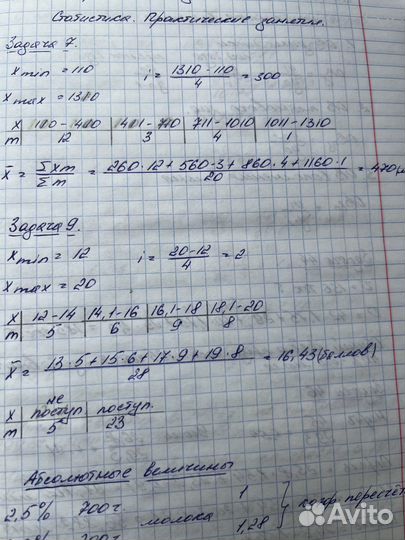 Статистика. Практические занятия.
Задача 7.
x min = 110 i = 1310 - 110 / 4 = 300
x max = 1310
x | 110 - 410 | 411 - 710 | 711 - 1010 | 1011 - 1310
m | 12 | 3 | 4 | 1
x̄ = Σxm / Σm = 260·12 + 560·3 + 860·4 + 1160·1 / 20 = 470
Задача 9.
x min = 12 i = 20-12 / 4 = 2
x max = 20
x | 12-14 | 14,1-16 | 16,1-18 | 18,1-20
m | 5 | 6 | 9 | 8
x̄ = 13·5 + 15·6 + 17·9 + 19·8 / 28 = 16,43 (баллов)
x | не поступ. | поступ.
m | 5 | 23
Абсолютные величины
2,5% 700г 1
молока 1,28 } коэф. пересчёт
Avito